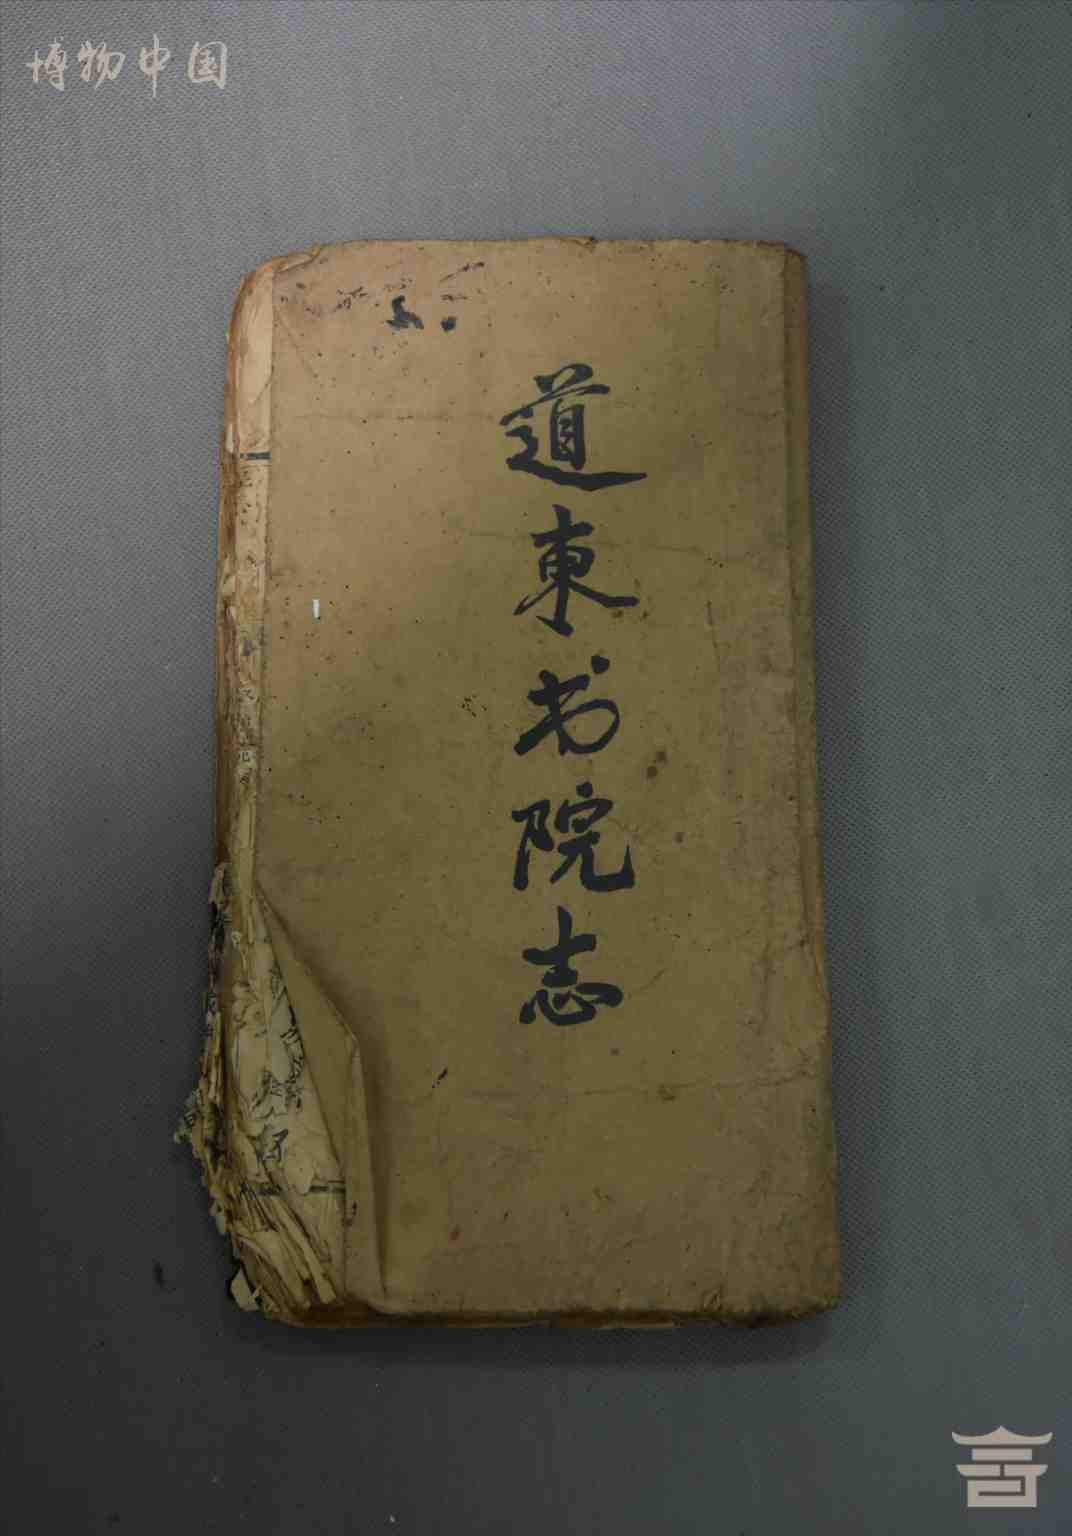 博物中国
道東书院志